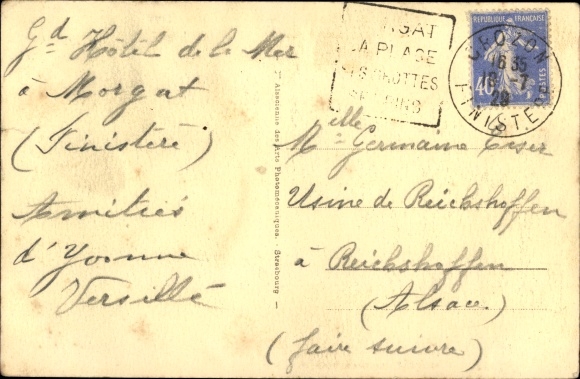 Gd Hôtel de la Mer
à Morgat
(Finistère)
Amitiés
d'Yvonne
Versillé
Cie Alsacienne des Arts Photomécaniques. - Strasbourg. -
GAT
LA PLAGE
GROTTES
RÉPUBLIQUE FRANÇAISE
40
POSTES
CROZON
16 35
-7
29
FINISTÈRE
Mlle Germaine
Usine de Reichshoffen
à Reichshoffen
(Alsace)
(faire suivre)